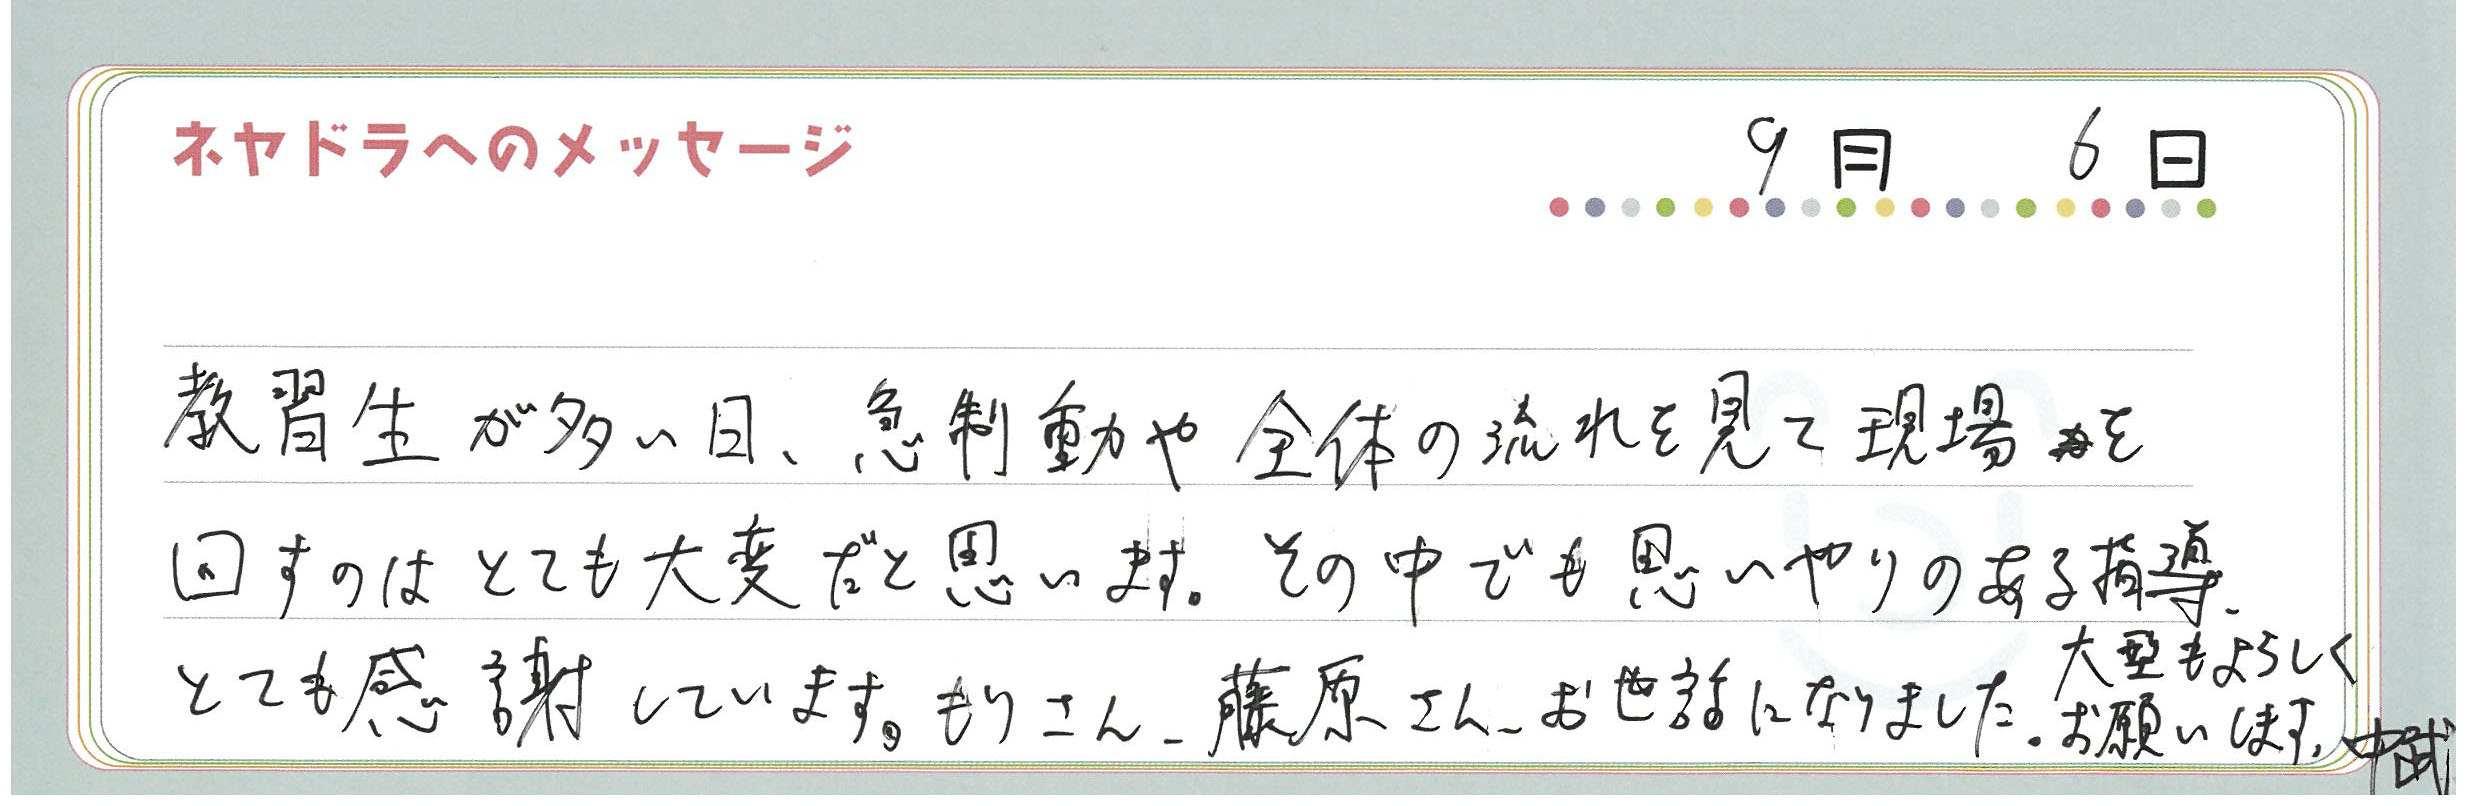 ネヤドラへのメッセージ
9月 6日
教習生が多い日、急制動や全体の流れを見て現場を
回すのはとても大変だと思います。その中でも思いやりのある指導、
とても感謝しています。もりさん、藤原さん、お世話になりました。
大型もよろしく
お願いします。中武